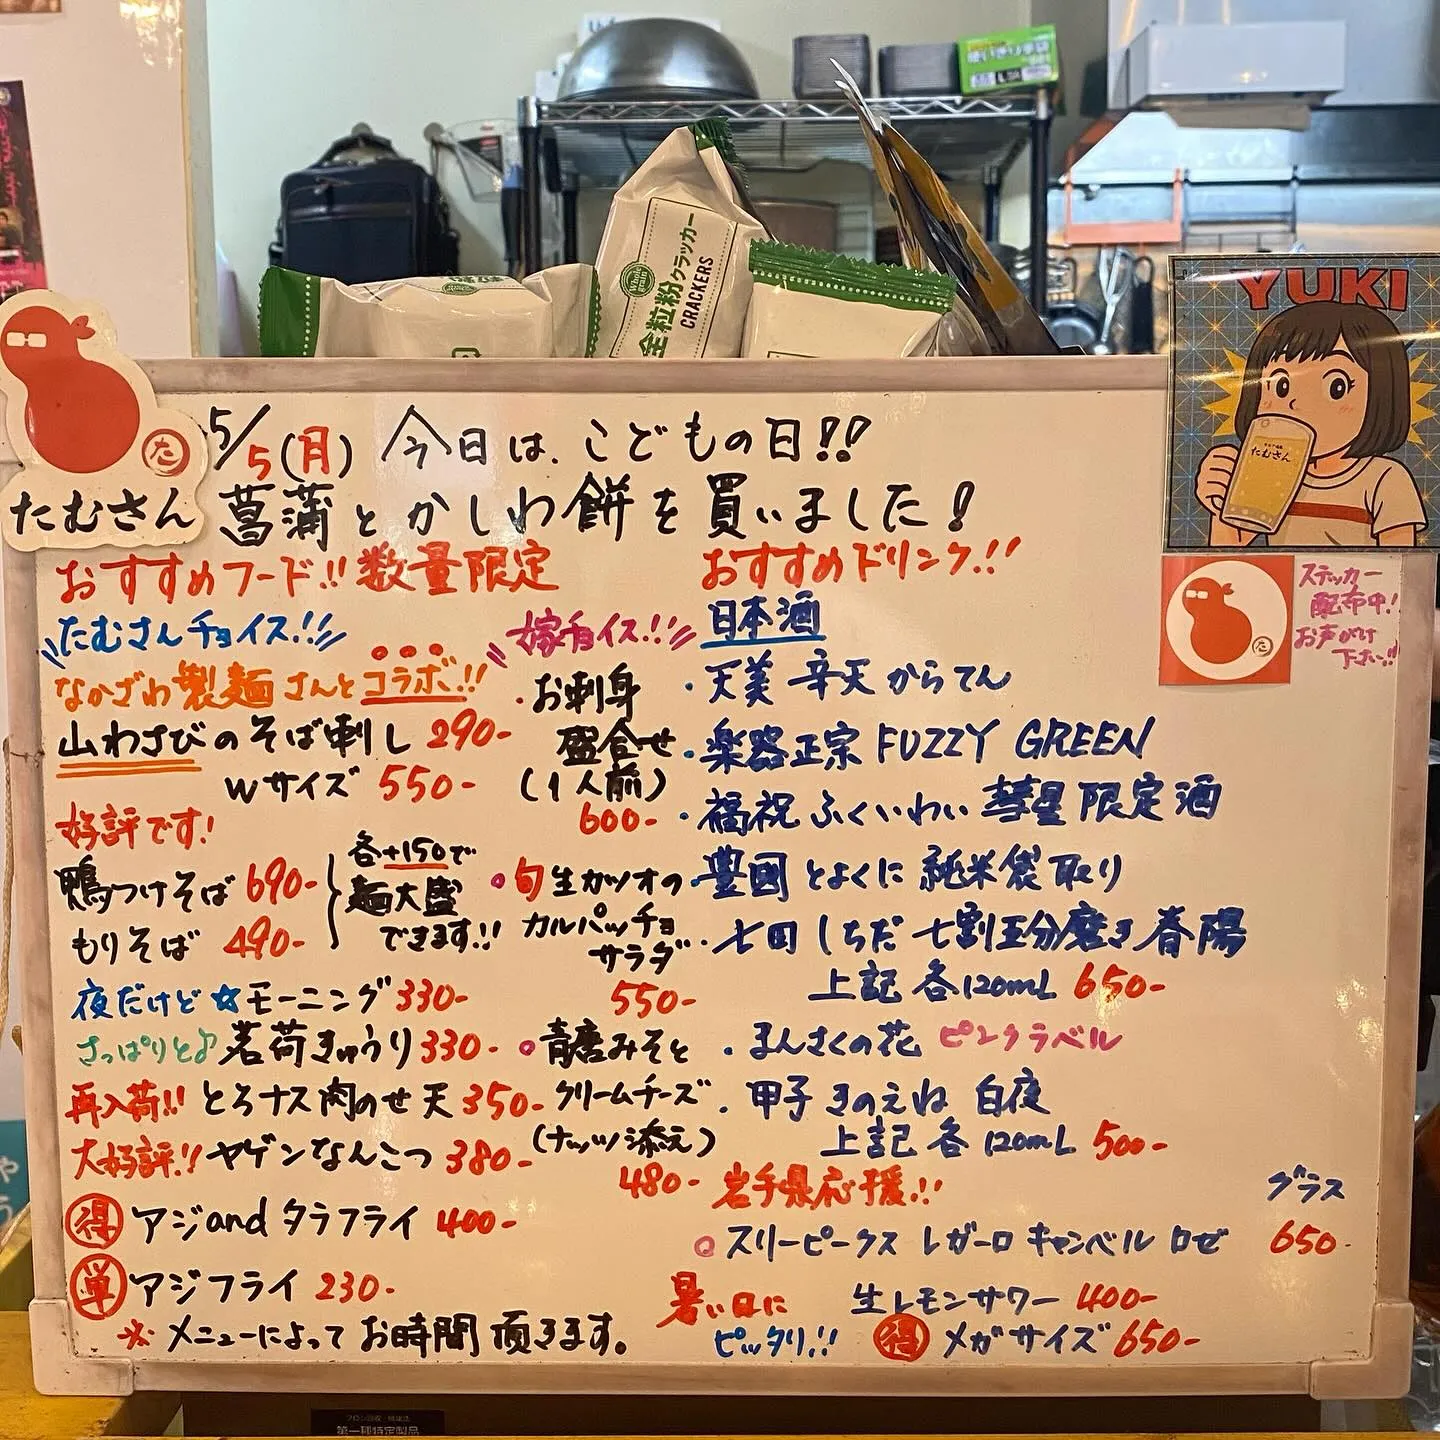 全粒粉クラッカー
CRACKERS
YUKI
たむさん
た
たむさん
5/5(月) 今日は、こどもの日!!
菖蒲とかしわ餅を買いました!
ステッカー
配布中!
お声がけ
下さい!!
おすすめフード!! 数量限定
たむさんチョイス!!
なかざわ製麺さんとコラボ!!
山わさびのそば刺し 290-
Wサイズ 550-
好評です!
鴨つけそば 690-
もりそば 490-
各+150で
麺大盛
できます!!
夜だけど☆モーニング 330-
さっぱりと♪ 茗荷きゅうり 330-
再入荷!! とろナス肉のせ天 350-
大好評!! ヤゲンなんこつ 380-
得 アジandタラフライ 400-
単 アジフライ 230-
※メニューによってお時間頂きます。
嫁チョイス!!
・お刺身
盛合せ
(1人前)
600-
旬 生カツオの
カルパッチョ
サラダ
550-
青唐みそと
クリームチーズ
(ナッツ添え)
480-
おすすめドリンク!!
日本酒
・天美 辛天 からてん
・楽器正宗 FUZZY GREEN
・福祝 ふくいわい 彗星 限定酒
・豊圀 とよくに 純米袋取り
・七田 しちだ 七割五分磨き 春陽
上記 各120mL 650-
・まんさくの花 ピンクラベル
・甲子 きのえね 白夜
上記 各120mL 500-
岩手県応援!!
グラス
スリーピークス レガーロ キャンベル ロゼ 650-
暑い日に
ピッタリ!!
生レモンサワー 400-
得 メガサイズ 650-
第一種特定製品